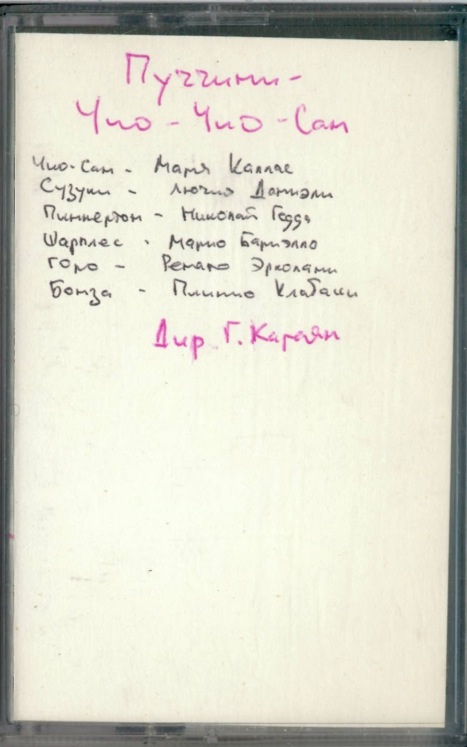 Пуччини -
Чио - Чио - Сан
Чио-Сан - Мария Каллас
Сузуки - Лючия Даниэли
Пинкертон - Николай Гедда
Шарплес - Марио Бариэлло
Горо - Ренато Эрколани
Бонза - Плинио Клабасси
Дир. Г. Караян